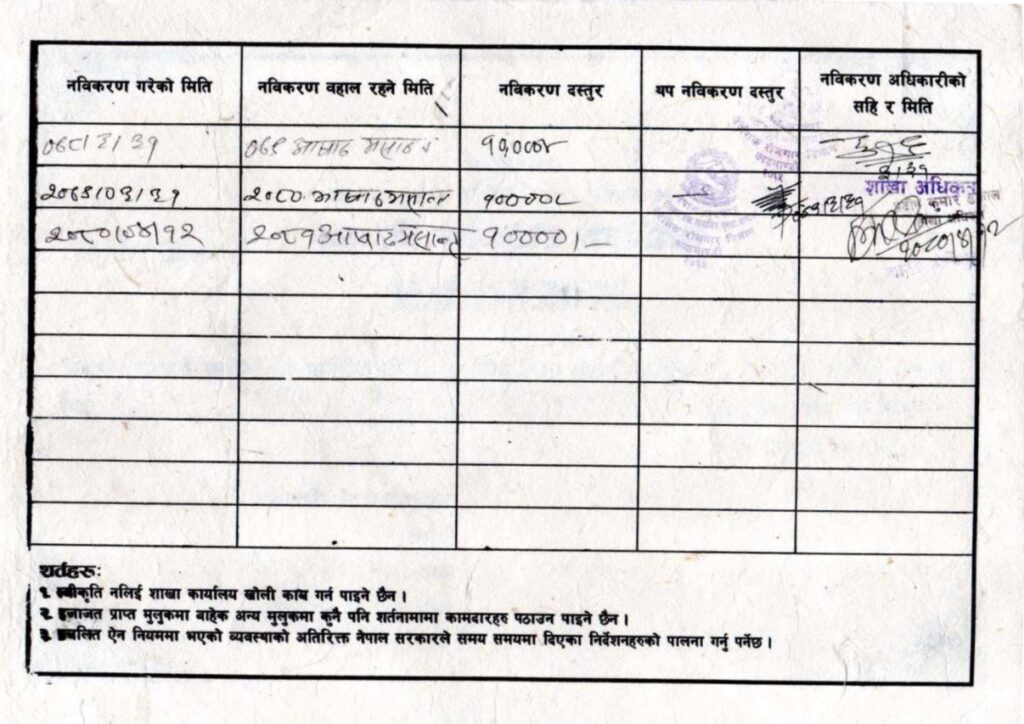 नविकरण गरेको मिति
नविकरण वहाल रहने मिति
नविकरण दस्तुर
थप नविकरण दस्तुर
नविकरण अधिकारीको
सहि र मिति
०७८।३।३१
०७९ आषाढ मसान्त
२०७९।०३।३१
२०८० आषाढ मसान्त
शाखा अधिकृत
२०८०।०४।१२
२०८१ आषाढ मसान्त
१००००।-
२०८०।४।१२
शर्तहरुः
१. स्वीकृति नलिई शाखा कार्यालय खोली काम गर्न पाइने छैन ।
२. इजाजत प्राप्त मुलुकमा बाहेक अन्य मुलुकमा कुनै पनि शर्तनामामा कामदारहरु पठाउन पाइने छैन ।
३. प्रचलित ऐन नियममा भएको व्यवस्थाको अतिरिक्त नेपाल सरकारले समय समयमा दिएका निर्देशनहरुको पालना गर्नु पर्नेछ ।